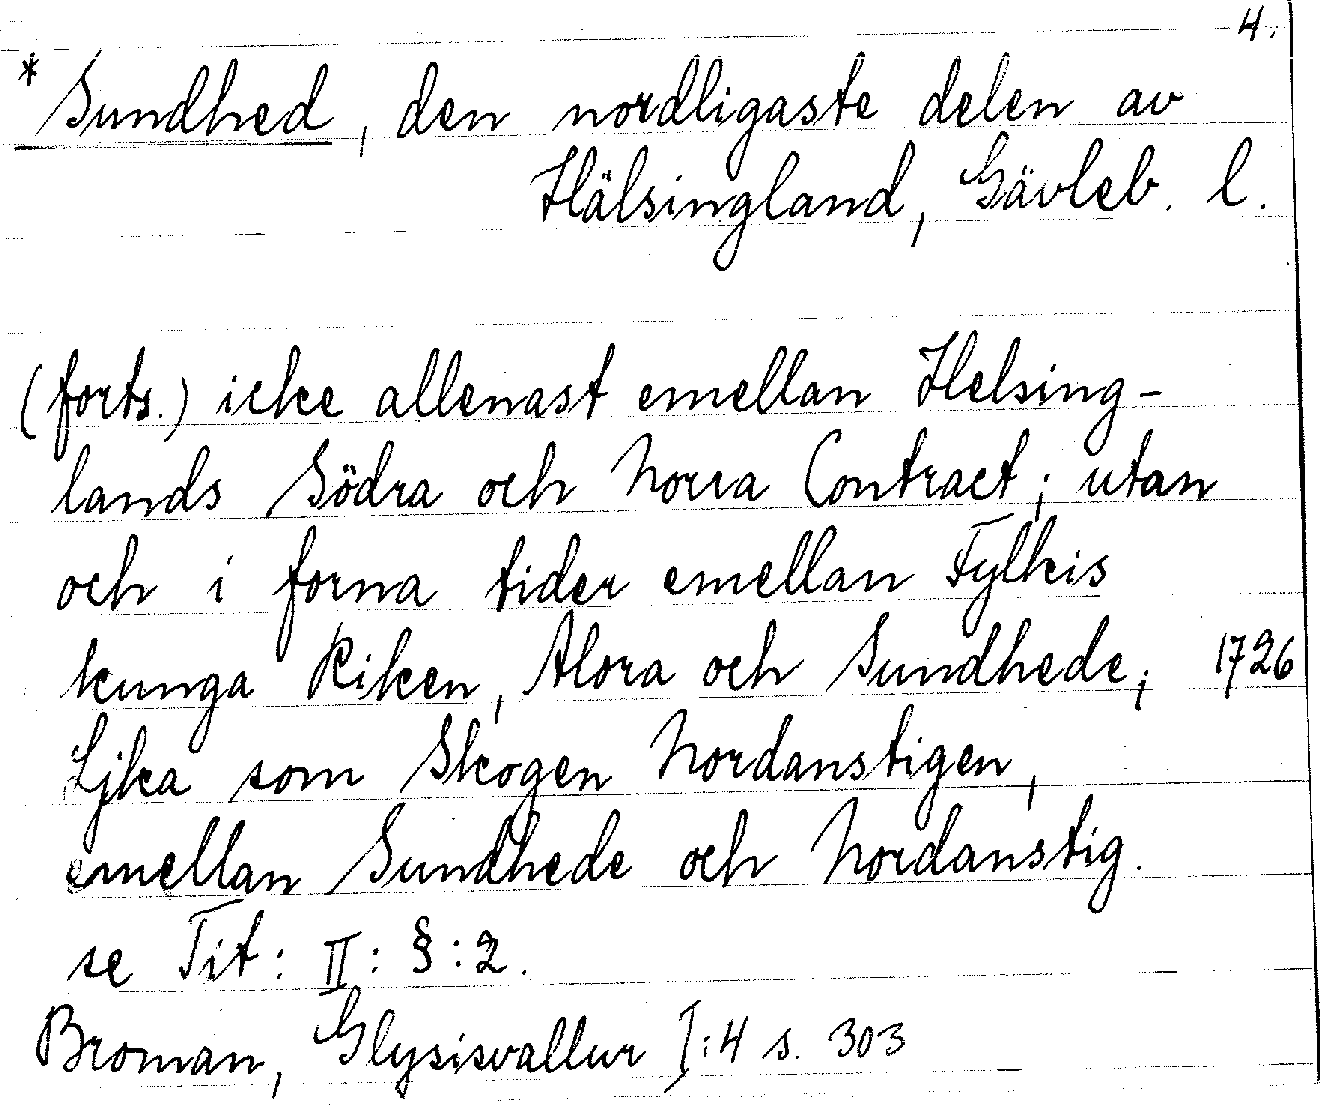 4.
* Sundhed, den nordligaste delen av
Hälsingland, Gävleb. l.
(forts.) icke allenast emellan Helsing-
lands Södra och Norra Contract; utan
och i forna tider emellan Fylkis
kunga Riken, Alora och Sundhede; 1726
Ljka som Skogen Nordanstigen,
emellan Sundhede och Nordanstig.
se Tit: II: §: 2.
Broman, Glysisvallur I:4 s. 303